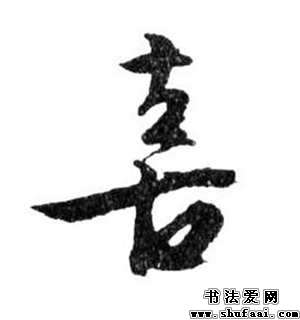 喜
书法爱网
www.shufaai.com